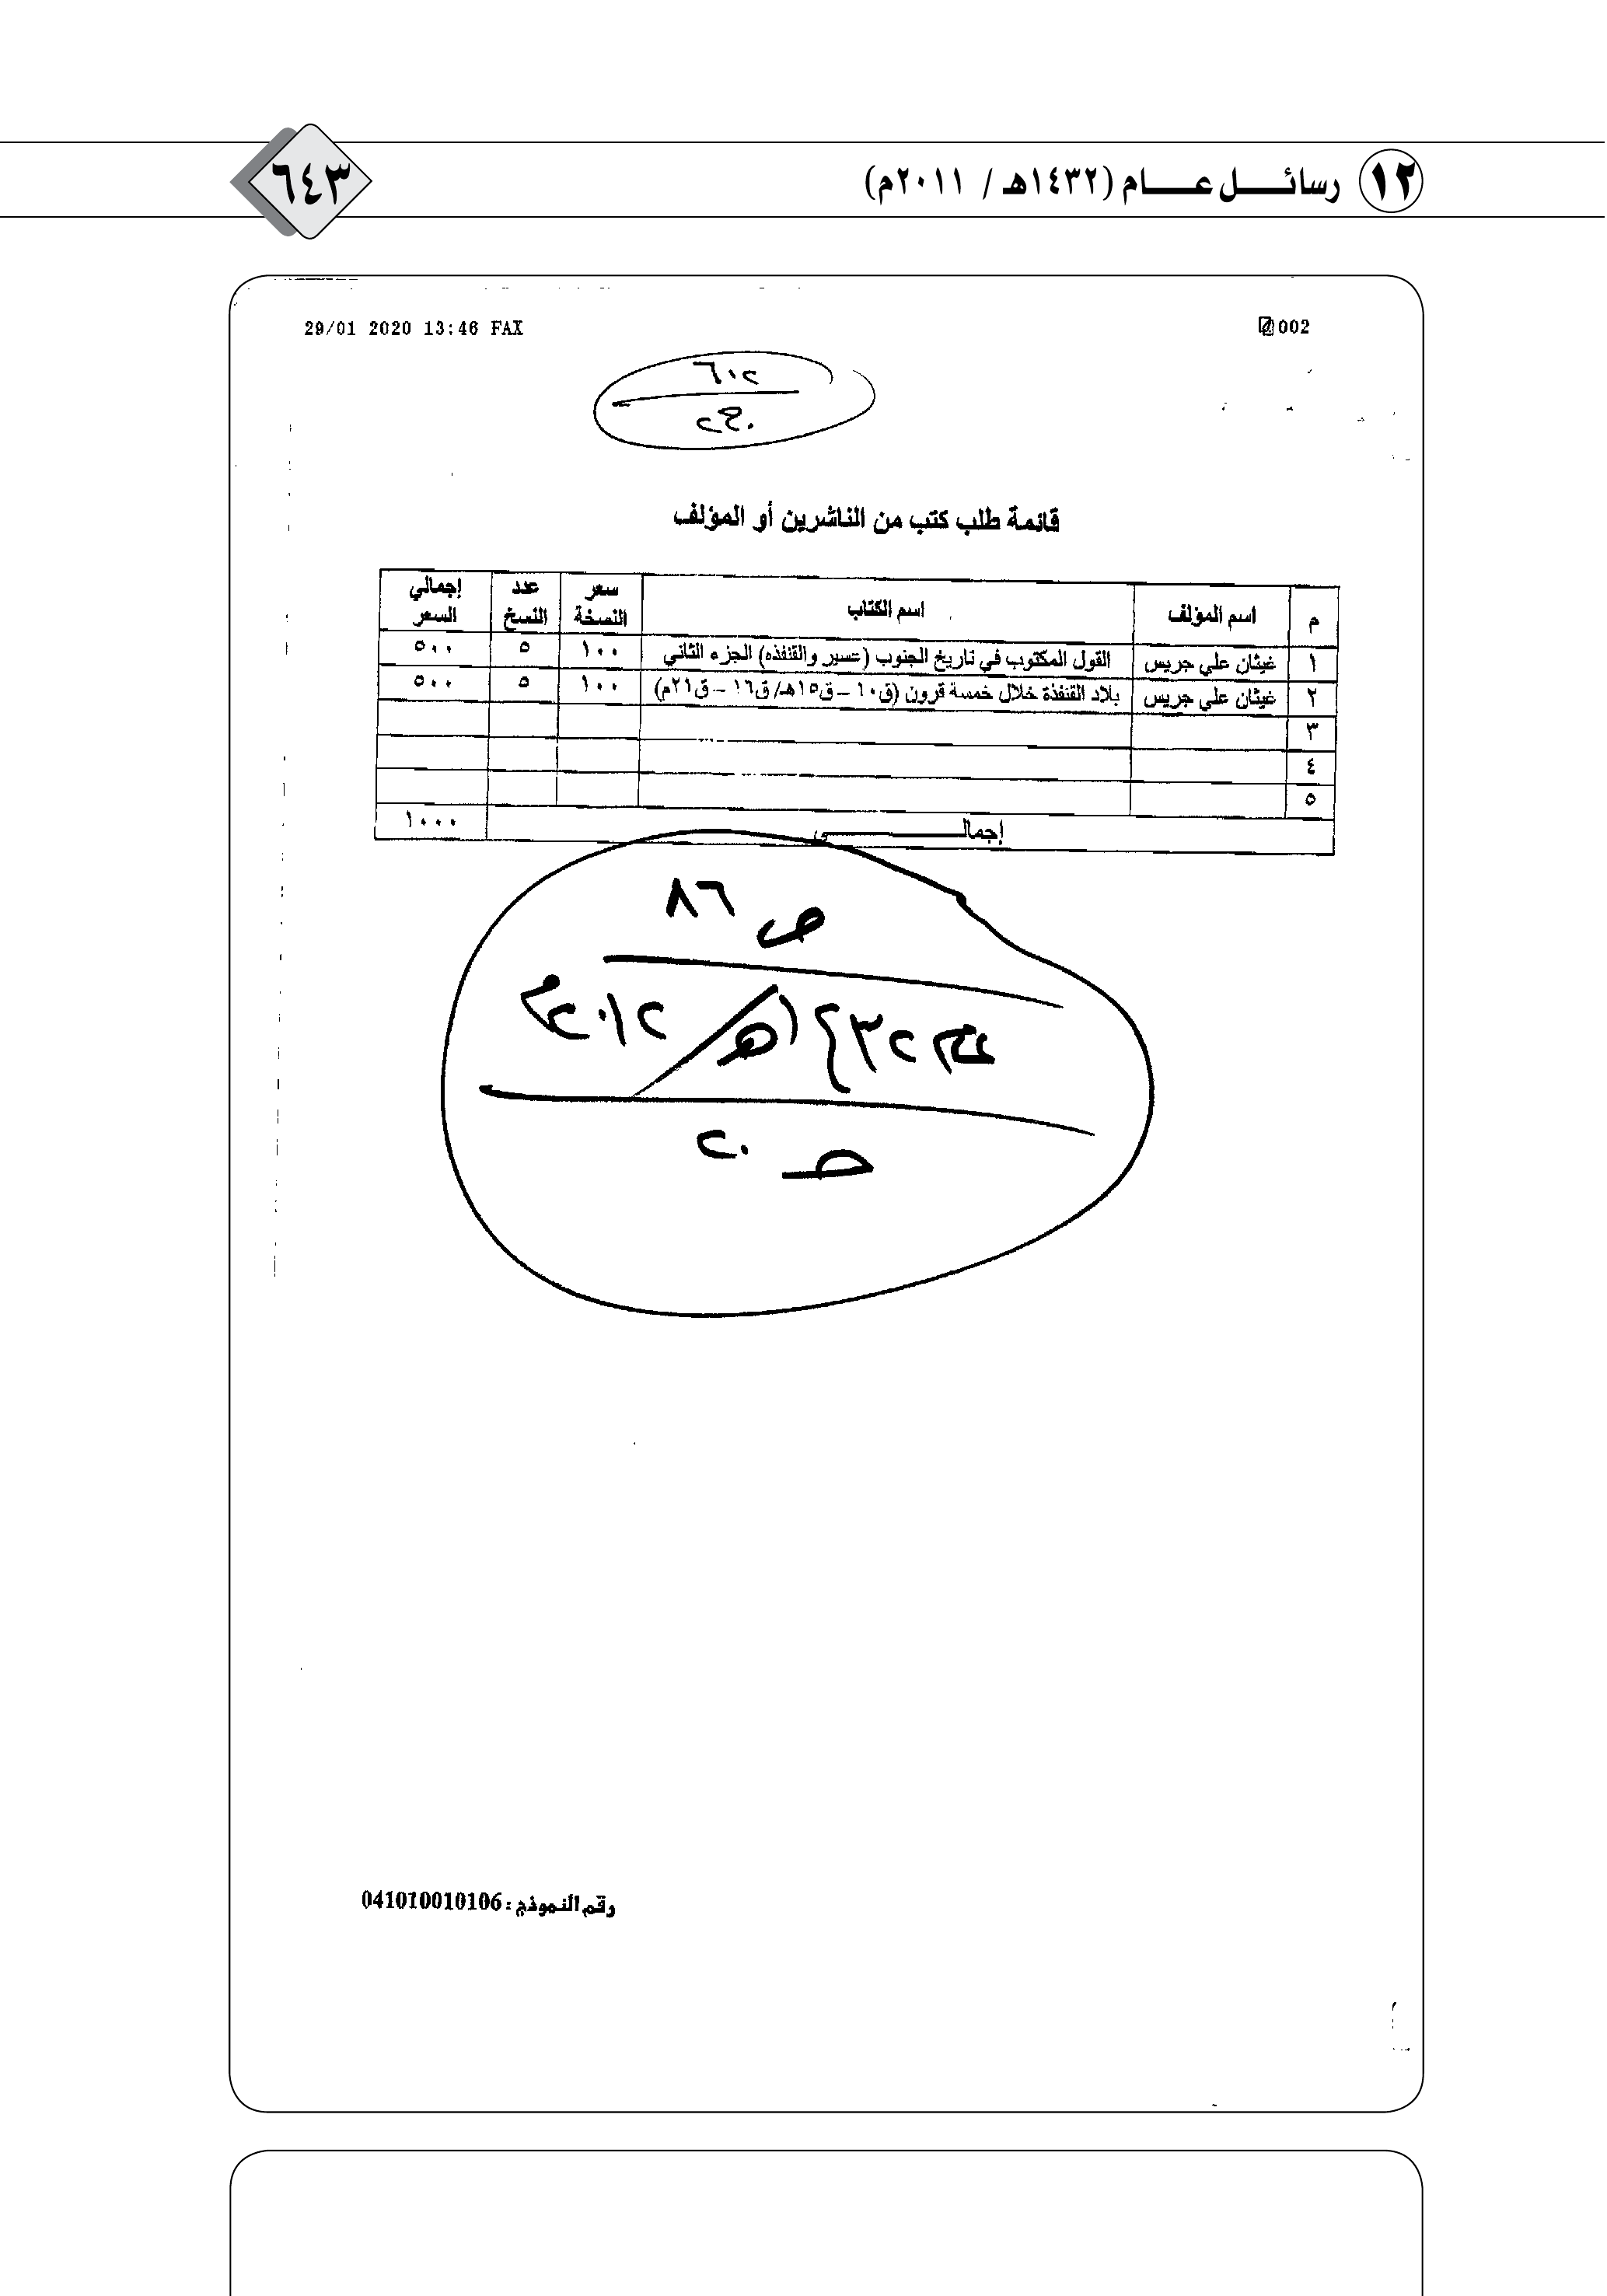 ١٢ رسائل عام (١٤٣٢هـ / ٢٠١١م) ٦٤٣
29/01 2020 13:46 FAX 002
٦٠٢
ح٢٠
قائمة طلب كتب من الناشرين أو المؤلف
م اسم المؤلف اسم الكتاب سعر النسخة عدد النسخ إجمالي السعر
١ غيثان علي جريس القول المكتوب في تاريخ الجنوب (عسير والقنفذه) الجزء الثاني ١٠٠ ٥ ٥٠٠
٢ غيثان علي جريس بلاد القنفذة خلال خمسة قرون (ق١٠ – ق١٥هـ/ ق١٦ – ق٢١م) ١٠٠ ٥ ٥٠٠
٣
٤
٥
إجمالي ١٠٠٠
ص ٨٦
عام ١٤٣٢هـ / ٢٠١٢م
ح ٢٠
رقم النموذج : 041010010106